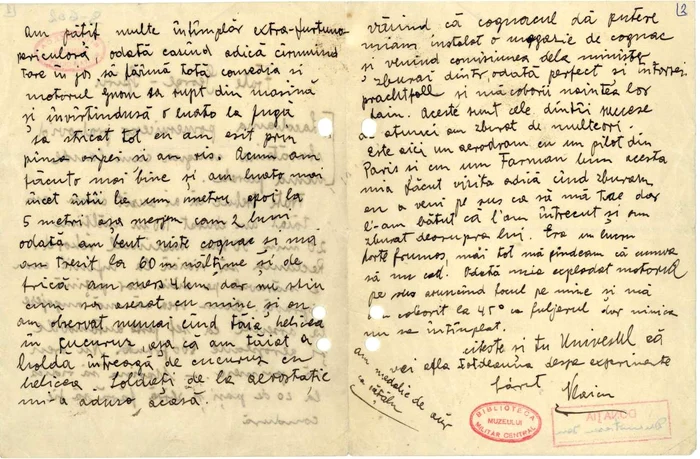 am pățit multe întîmplăr extra-furtuna
periculoră, odată casînd adică cîrmuind
tare în jos să fărîmă totă comedia și
motorul Gnom sa rupt din mașină
și învîrtindusă o luato la fugă
sa stricat tot eu am eșit prin
pinza aripei și am rîs. Acum am
făcuto mai bine și am luato mai
încet întîi la un metru apoi la
5 metri așa mergem cam 2 luni
odată am beut niște cognac și mă
am trezit la 60 m înălțime și de
frică am mers 4 km dar nu știu
cum sa așezat cu mine și eu
am observat numai cînd tăia helicea
în cucuruz, așa că am tăiat o
holdă întreagă de cucuruz cu
helicea. Soldați de la aerostație
mi-a aduso acasă.
2
văzind că cognacul dă putere
miam instalat o magazie de cognac
și venind comisiunea dela minister
zburai dintr'odată perfect și întorsei
prachtfoll și mă coborîi naintea lor
lain. Aceste sunt cele dintîi succese
de atunci am zburat de multeori.
Este aici un aerodrom cu un pilot din
Paris și cu un Farman bun acesta
mia făcut vizita adică cînd zburam
eu a venit pe sus ca să mă tae dar
l-am bătut că l'am întrecut și am
zburat deasupra lui. Era un lucru
forte frumos, mai toți mă pîndeam că cumva
să nu cad. Odată mia explodat motorul
pe sus aruncînd focul pe mine și mă
am coborît la 45° ca fulgerul dar nimica
nu sa întîmplat.
citește și tu Universul că
vei afla totdeauna despre experimente
Sărut Vlaicu
am medalie de aur
BIBLIOTECA
MUZEULUI
MILITAR CENTRAL